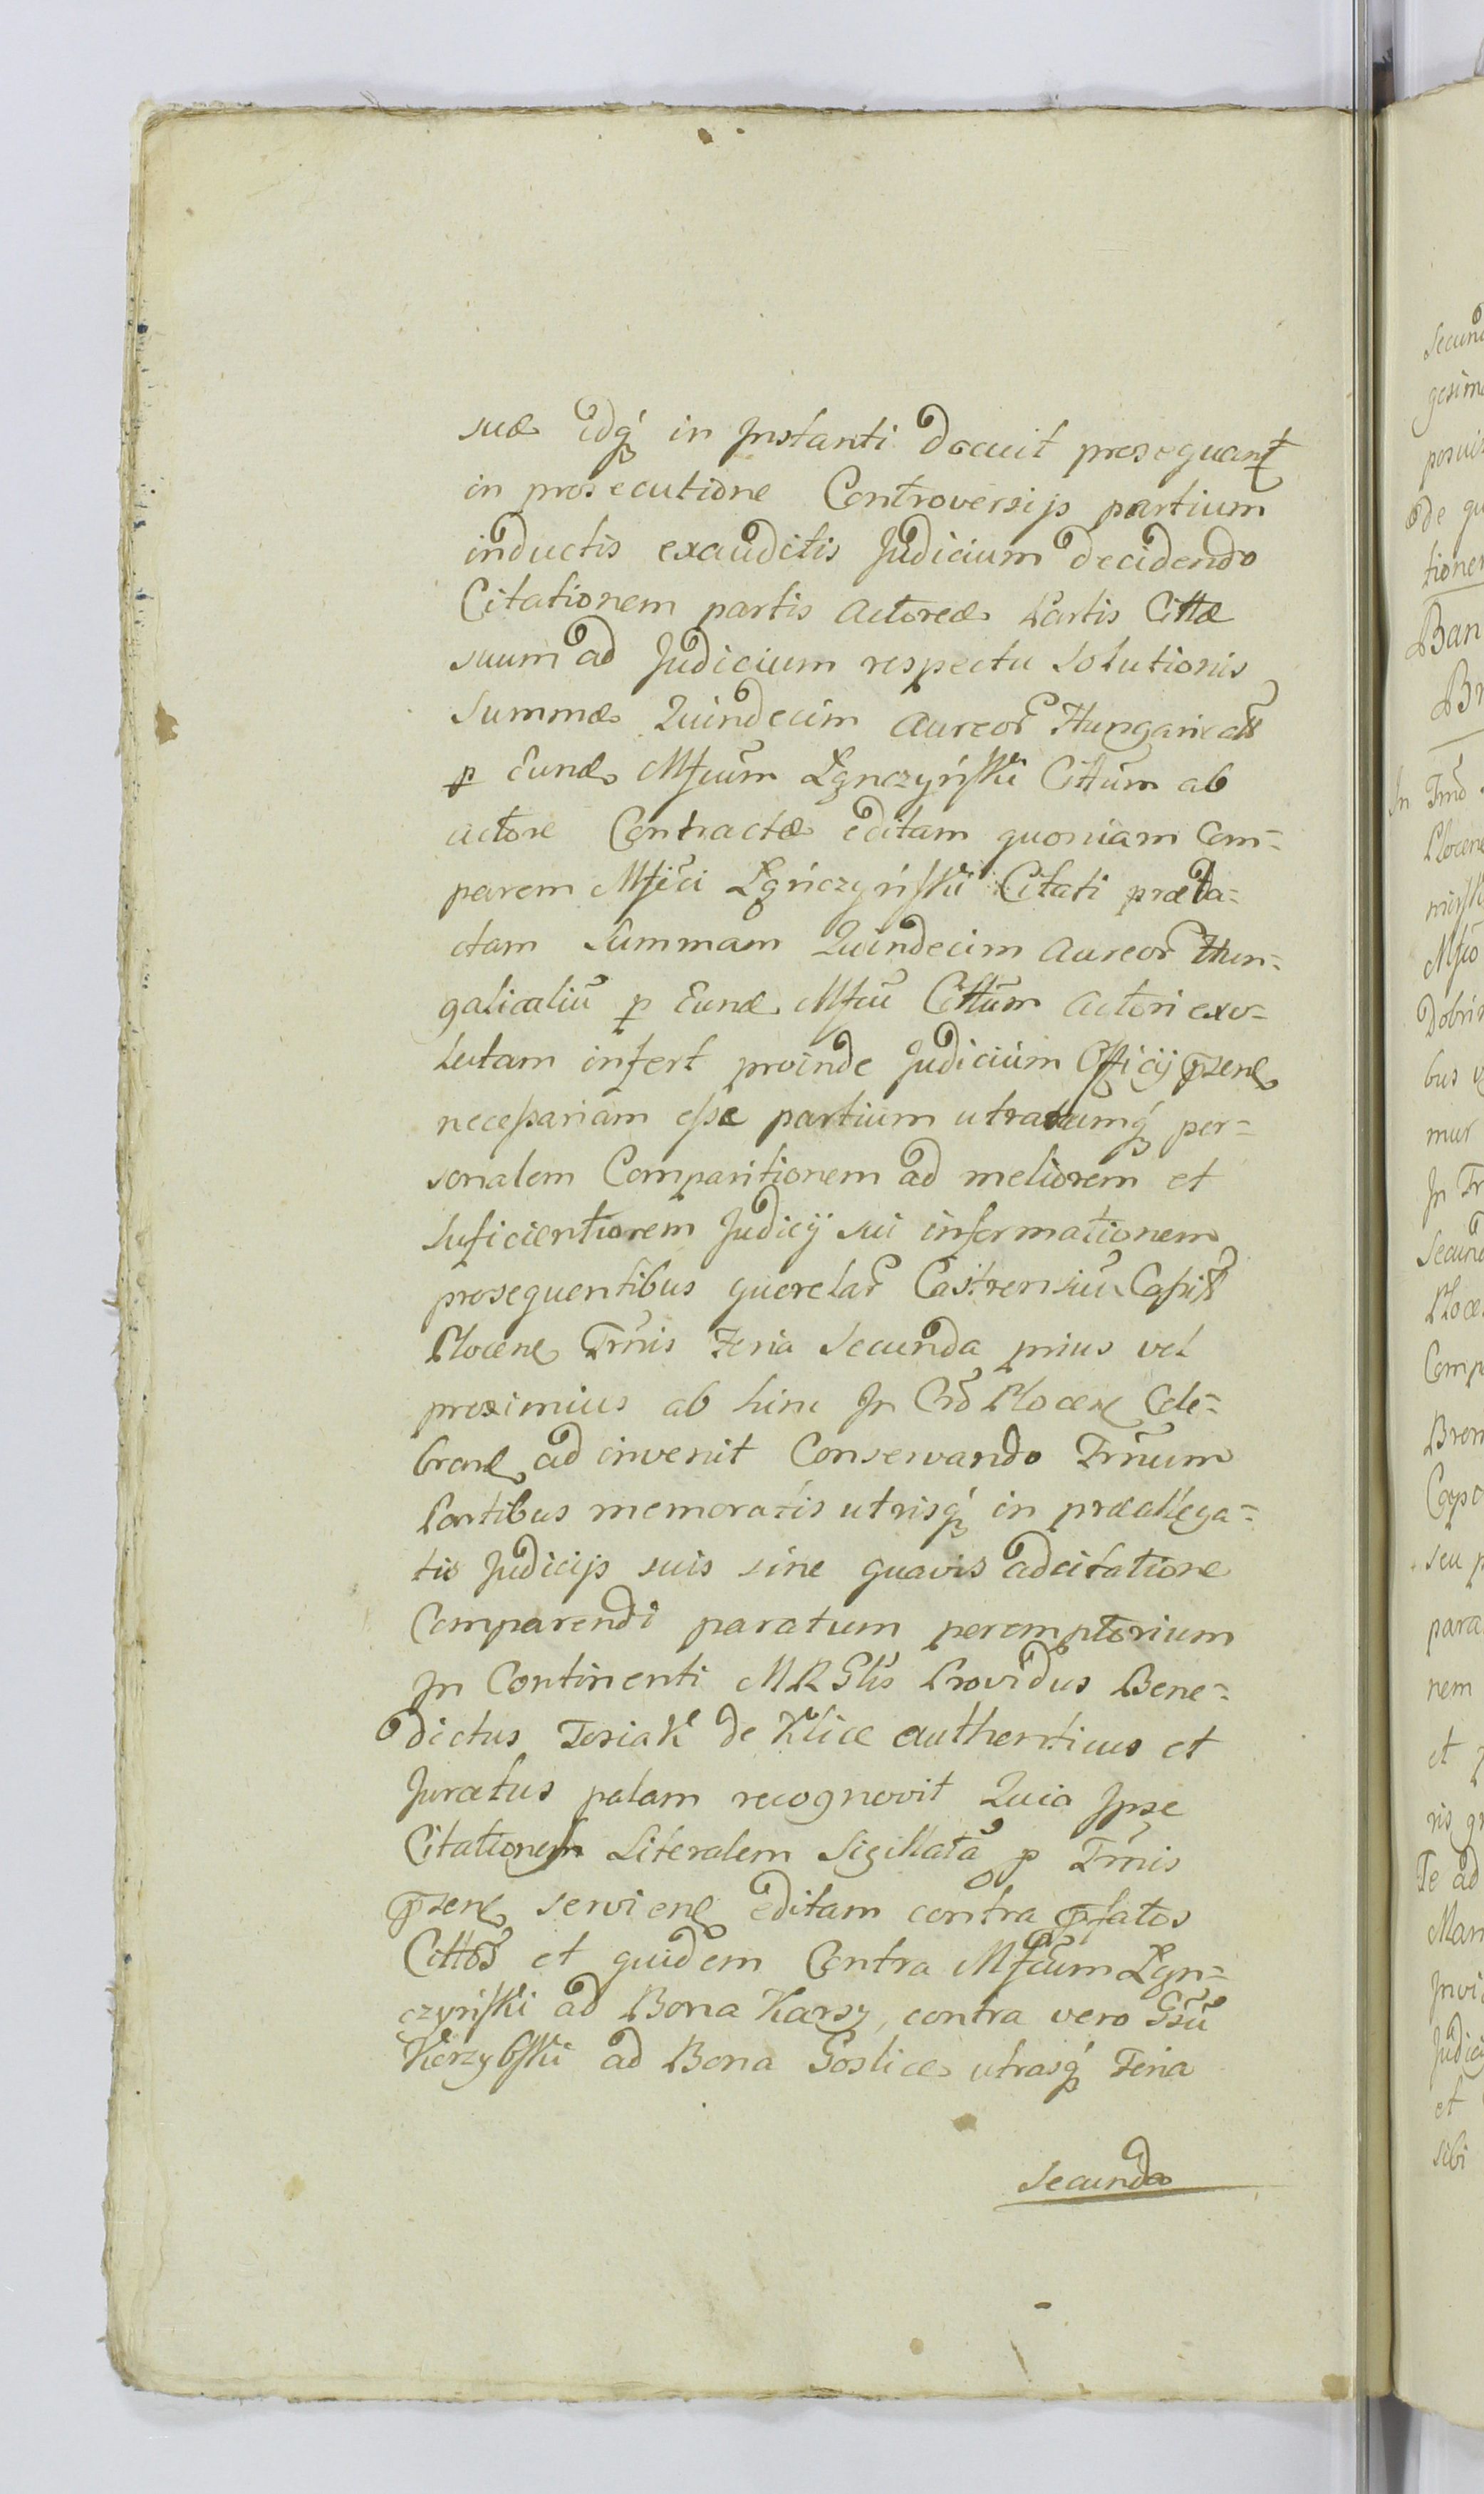 suæ idq́ in Instanti docuit prosequant
in prosecutione Controversijs partium
inductis exauditis Judicium decidendo
Citationem partis Actoreæ Partis Cittæ
suum ad Judicium respectu Solutionis
Summæ Quindecim Aureor Hungarical
p Eund Mfcum Łęnczyński Cittum ab
actore Contractæ editam quoniam Com=
parem Mfici Łęńczyński Citati præta=
ctam Summam Quindecim Aureor Hun=
galicaliu p Eund Mfcu Cittum Actori exo=
lutam infert proinde Judicium Officij psens
necessariam esse partium utrarumq́ per=
sonalem Comparitionem ad meliorem et
suficientiorem Judicij sui informationem
prosequentibus querelar Castrensiu Capit
Plocens Trnis Feria Secunda prius vel
proximius ab hinc In Cro Plocens Cele=
brans ad invenit Conservando Trnum
Partibus memoratis utrisq́ in præallega=
tis Judicijs suis sine quavis adcitatione
Comparendi paratum peremptorium
In Continenti MRGlis Providus Bene=
dictus Tosiak de Klice authenticus et
Juratus palam recognovit Quia Ipse
Citationem Literalem Sigillatã p Trnis
psens serviens editam contra pfatos
Cittos et quidem Contra Mfcum Łęn=
czyński ad Bona Karsy, contra vero Gsu
Korzybski ad Bona Goslice utrasq́ Feria
Secunda
In
Ban
Br
bus
mur
In Tr
Comp
seu p
para
nem
et
Te ad
et
sibi